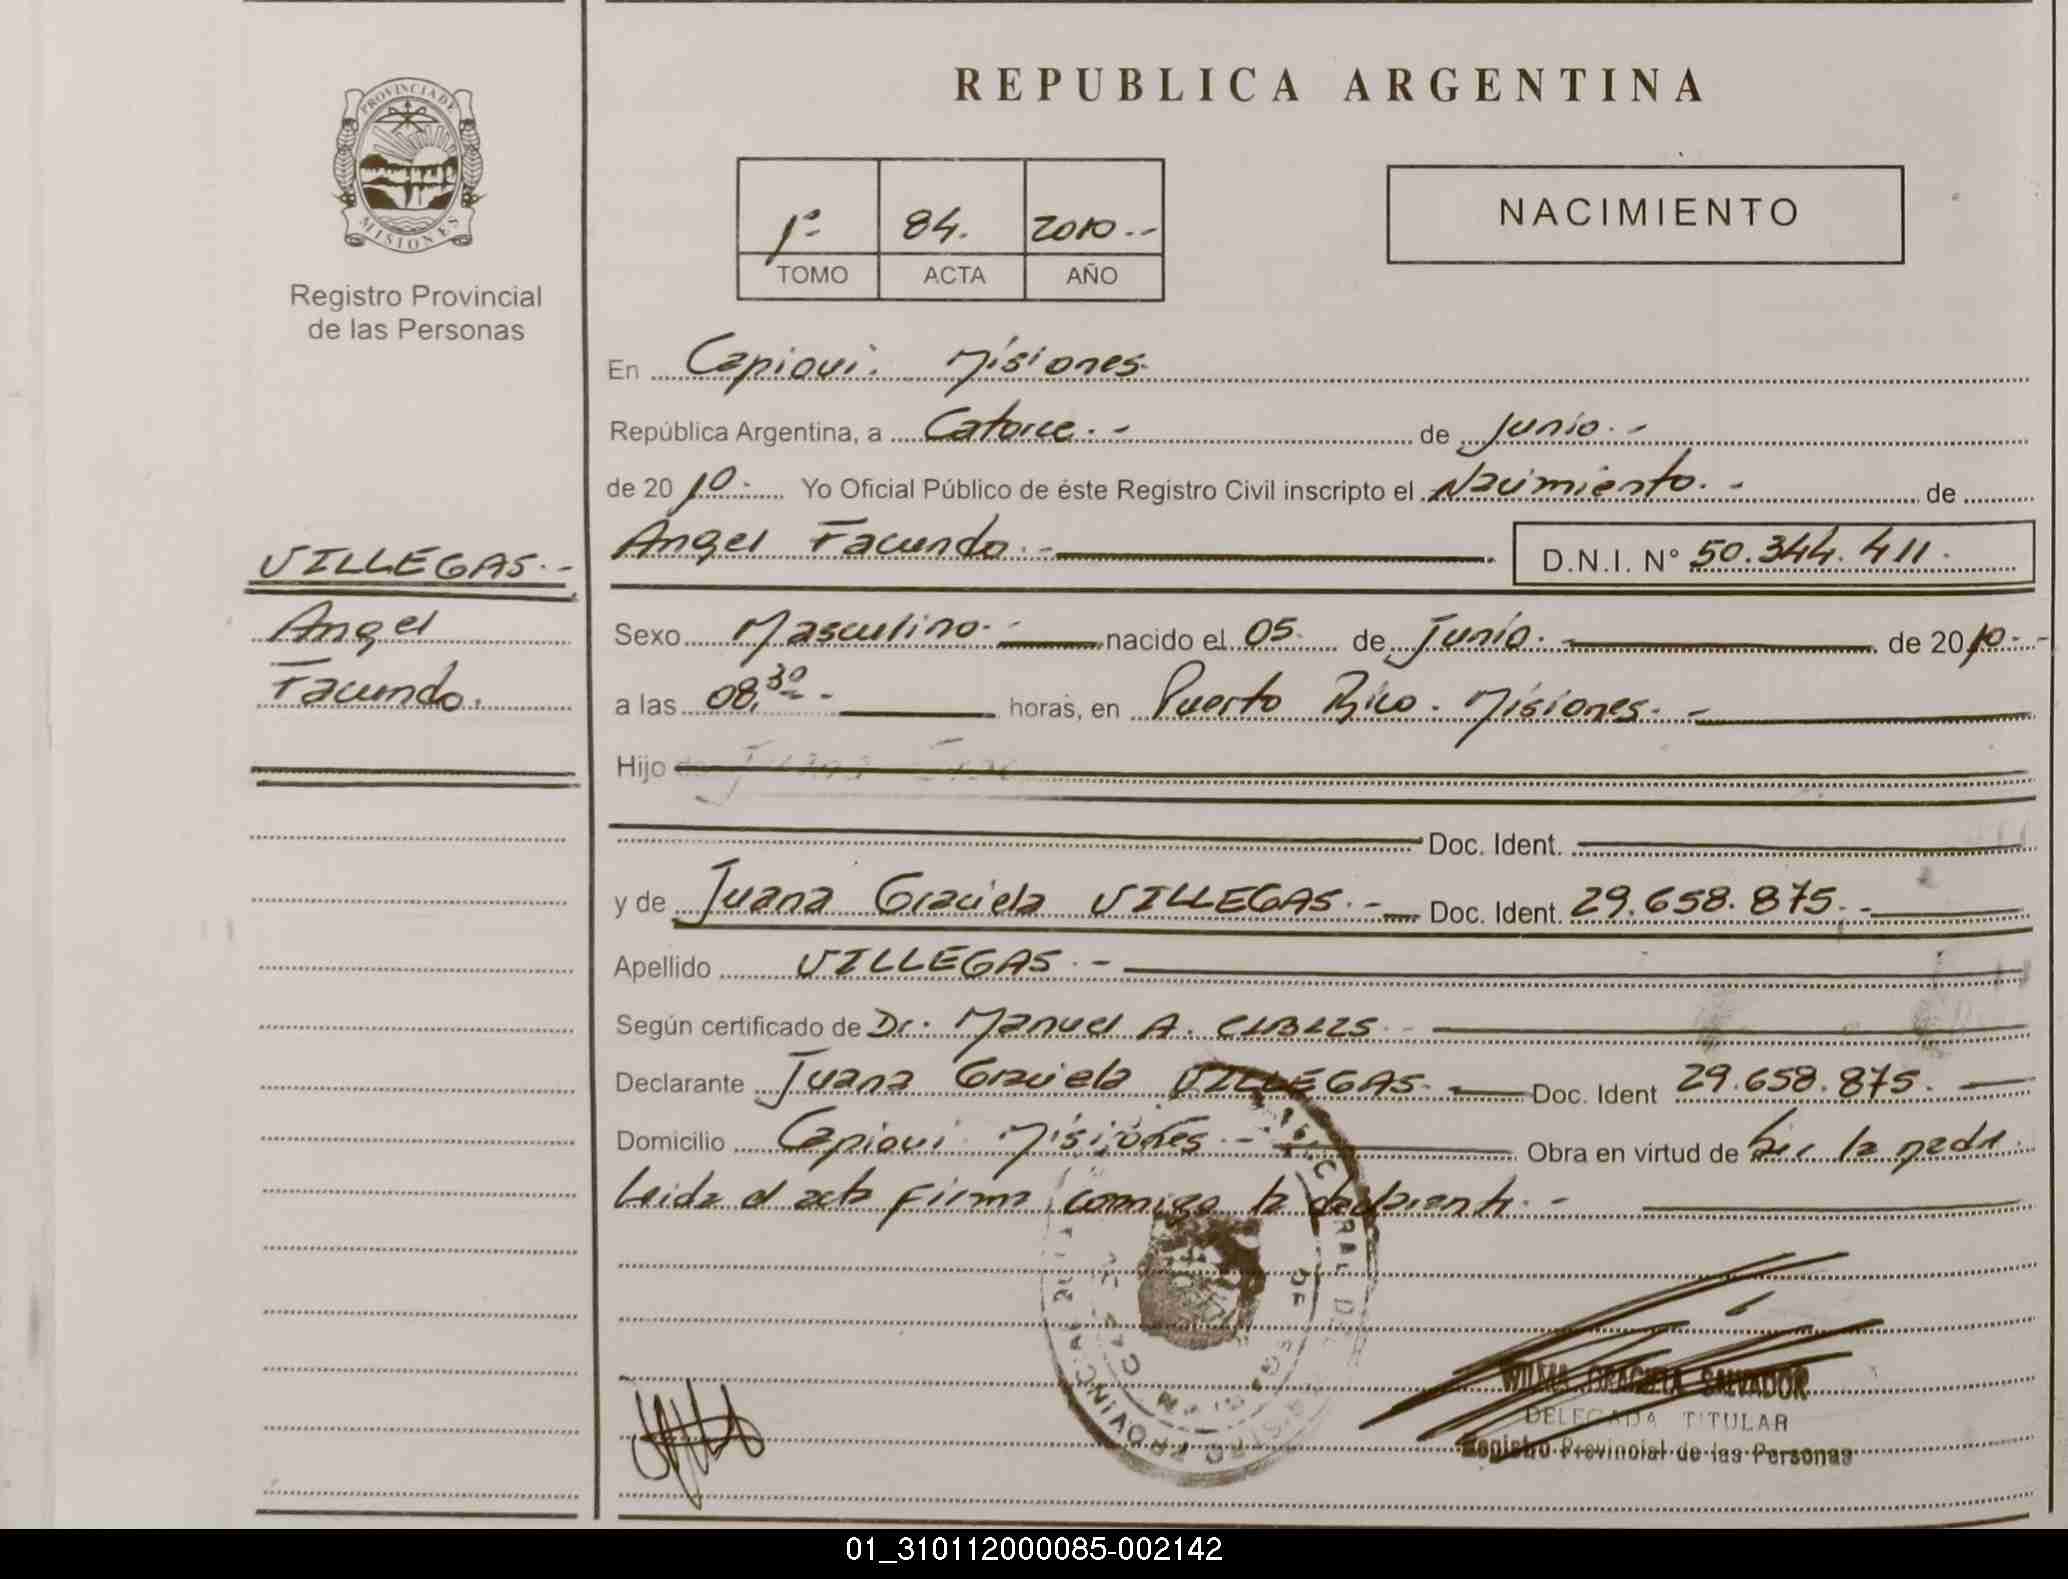 REPUBLICA ARGENTINA
PROVINCIA DE
MISIONES
Registro Provincial
de las Personas
1º- 84. 2010.--
TOMO ACTA AÑO
NACIMIENTO
En Capioui. Misiones.
República Argentina, a Catorce.- de Junio.-
de 2010.- Yo Oficial Público de éste Registro Civil inscripto el Nacimiento.- de
Angel Facundo.- D.N.I. Nº 50.344.411.
VILLEGAS.-
Angel
Facundo.
Sexo Masculino.- nacido el 05. de Junio.- de 2010.-
a las 08,30-- horas, en Puerto Rico. Misiones.-
Hijo
Doc. Ident.
y de Juana Graciela VILLEGAS.- Doc. Ident. 29.658.875.-
Apellido VILLEGAS.-
Según certificado de Dr. Manuel A.
Declarante Juana Graciela VILLEGAS.- Doc. Ident 29.658.875.
Domicilio Capioui. Misiones.- Obra en virtud de Ser la madre.
Leida el acta firma conmigo la declarante.-
REGISTRO PROVINCIAL
WILMA GRACIELA SALVADOR
DELEGADA TITULAR
Registro Provincial de las Personas
01_310112000085-002142